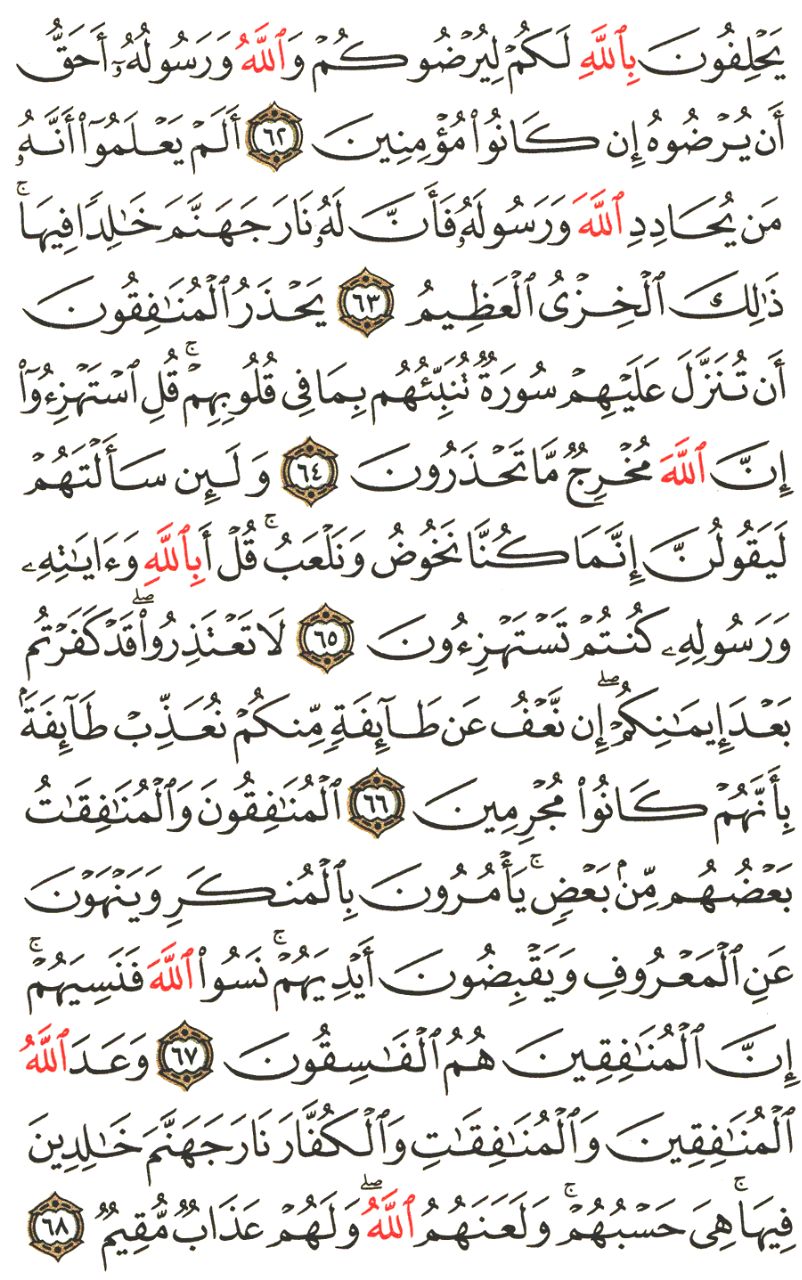 يَحْلِفُونَ بِٱللَّهِ لَكُمْ لِيُرْضُوكُمْ وَٱللَّهُ وَرَسُولُهُۥٓ أَحَقُّ
أَن يُرْضُوهُ إِن كَانُوا۟ مُؤْمِنِينَ ٦٢ أَلَمْ يَعْلَمُوٓا۟ أَنَّهُۥ
مَن يُحَادِدِ ٱللَّهَ وَرَسُولَهُۥ فَأَنَّ لَهُۥ نَارَ جَهَنَّمَ خَٰلِدًا فِيهَا ۚ
ذَٰلِكَ ٱلْخِزْىُ ٱلْعَظِيمُ ٦٣ يَحْذَرُ ٱلْمُنَٰفِقُونَ
أَن تُنَزَّلَ عَلَيْهِمْ سُورَةٌ تُنَبِّئُهُم بِمَا فِى قُلُوبِهِمْ ۚ قُلِ ٱسْتَهْزِءُوٓا۟
إِنَّ ٱللَّهَ مُخْرِجٌ مَّا تَحْذَرُونَ ٦٤ وَلَئِن سَأَلْتَهُمْ
لَيَقُولُنَّ إِنَّمَا كُنَّا نَخُوضُ وَنَلْعَبُ ۚ قُلْ أَبِٱللَّهِ وَءَايَٰتِهِۦ
وَرَسُولِهِۦ كُنتُمْ تَسْتَهْزِءُونَ ٦٥ لَا تَعْتَذِرُوا۟ ۖ قَدْ كَفَرْتُم
بَعْدَ إِيمَٰنِكُمْ ۖ إِن نَّعْفُ عَن طَآئِفَةٍ مِّنكُمْ نُعَذِّبْ طَآئِفَةًۢ
بِأَنَّهُمْ كَانُوا۟ مُجْرِمِينَ ٦٦ ٱلْمُنَٰفِقُونَ وَٱلْمُنَٰفِقَٰتُ
بَعْضُهُم مِّنۢ بَعْضٍ ۚ يَأْمُرُونَ بِٱلْمُنكَرِ وَيَنْهَوْنَ
عَنِ ٱلْمَعْرُوفِ وَيَقْبِضُونَ أَيْدِيَهُمْ ۚ نَسُوا۟ ٱللَّهَ فَنَسِيَهُمْ ۗ
إِنَّ ٱلْمُنَٰفِقِينَ هُمُ ٱلْفَٰسِقُونَ ٦٧ وَعَدَ ٱللَّهُ
ٱلْمُنَٰفِقِينَ وَٱلْمُنَٰفِقَٰتِ وَٱلْكُفَّارَ نَارَ جَهَنَّمَ خَٰلِدِينَ
فِيهَا ۚ هِىَ حَسْبُهُمْ ۚ وَلَعَنَهُمُ ٱللَّهُ ۖ وَلَهُمْ عَذَابٌ مُّقِيمٌ ٦٨